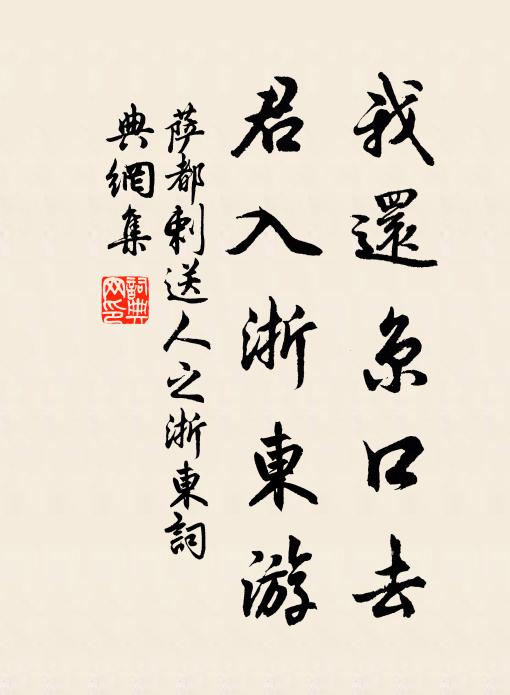 我還京口去
君入浙東游
薩都剌送人之浙東詞
典網集
詞典网印